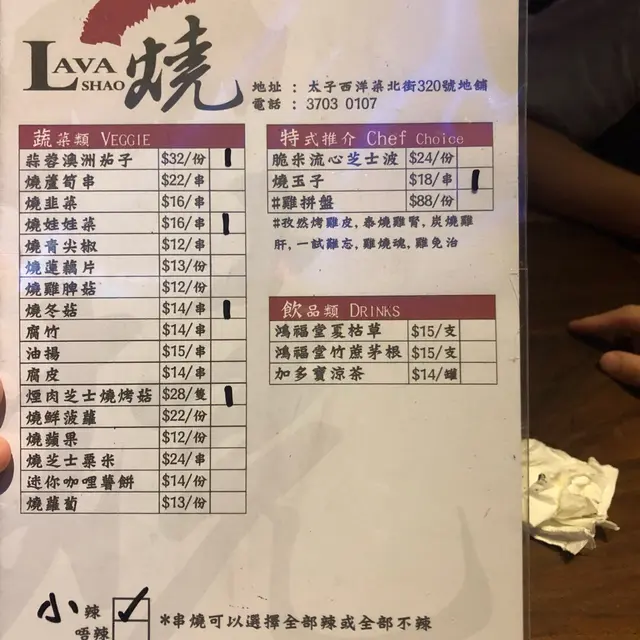 LAVA
SHAO
燒
地址 : 太子西洋菜北街320號地舖
電話 : 3703 0107
蔬菜類 VEGGIE
蒜蓉澳洲茄子 $32/份
燒蘆筍串 $22/串
燒韭菜 $16/串
燒娃娃菜 $16/串
燒青尖椒 $12/串
燒蓮藕片 $13/份
燒雞脾菇 $12/份
燒冬菇 $14/串
腐竹 $14/串
油揚 $15/串
腐皮 $14/串
煙肉芝士燒烤菇 $28/隻
燒鮮菠蘿 $22/份
燒蘋果 $12/份
燒芝士粟米 $24/串
迷你咖哩薯餅 $14/份
燒蘿蔔 $13/份
特式推介 Chef Choice
脆米流心芝士波 $24/份
燒玉子 $18/串
#雞拼盤 $88/份
#孜然烤雞皮,泰燒雞腎,炭燒雞
肝,一試難忘,雞燒魂,雞免治
飲品類 DRINKS
鴻福堂夏枯草 $15/支
鴻福堂竹蔗茅根 $15/支
加多寶涼茶 $14/罐
小辣 ✓
唔辣
*串燒可以選擇全部辣或全部不辣